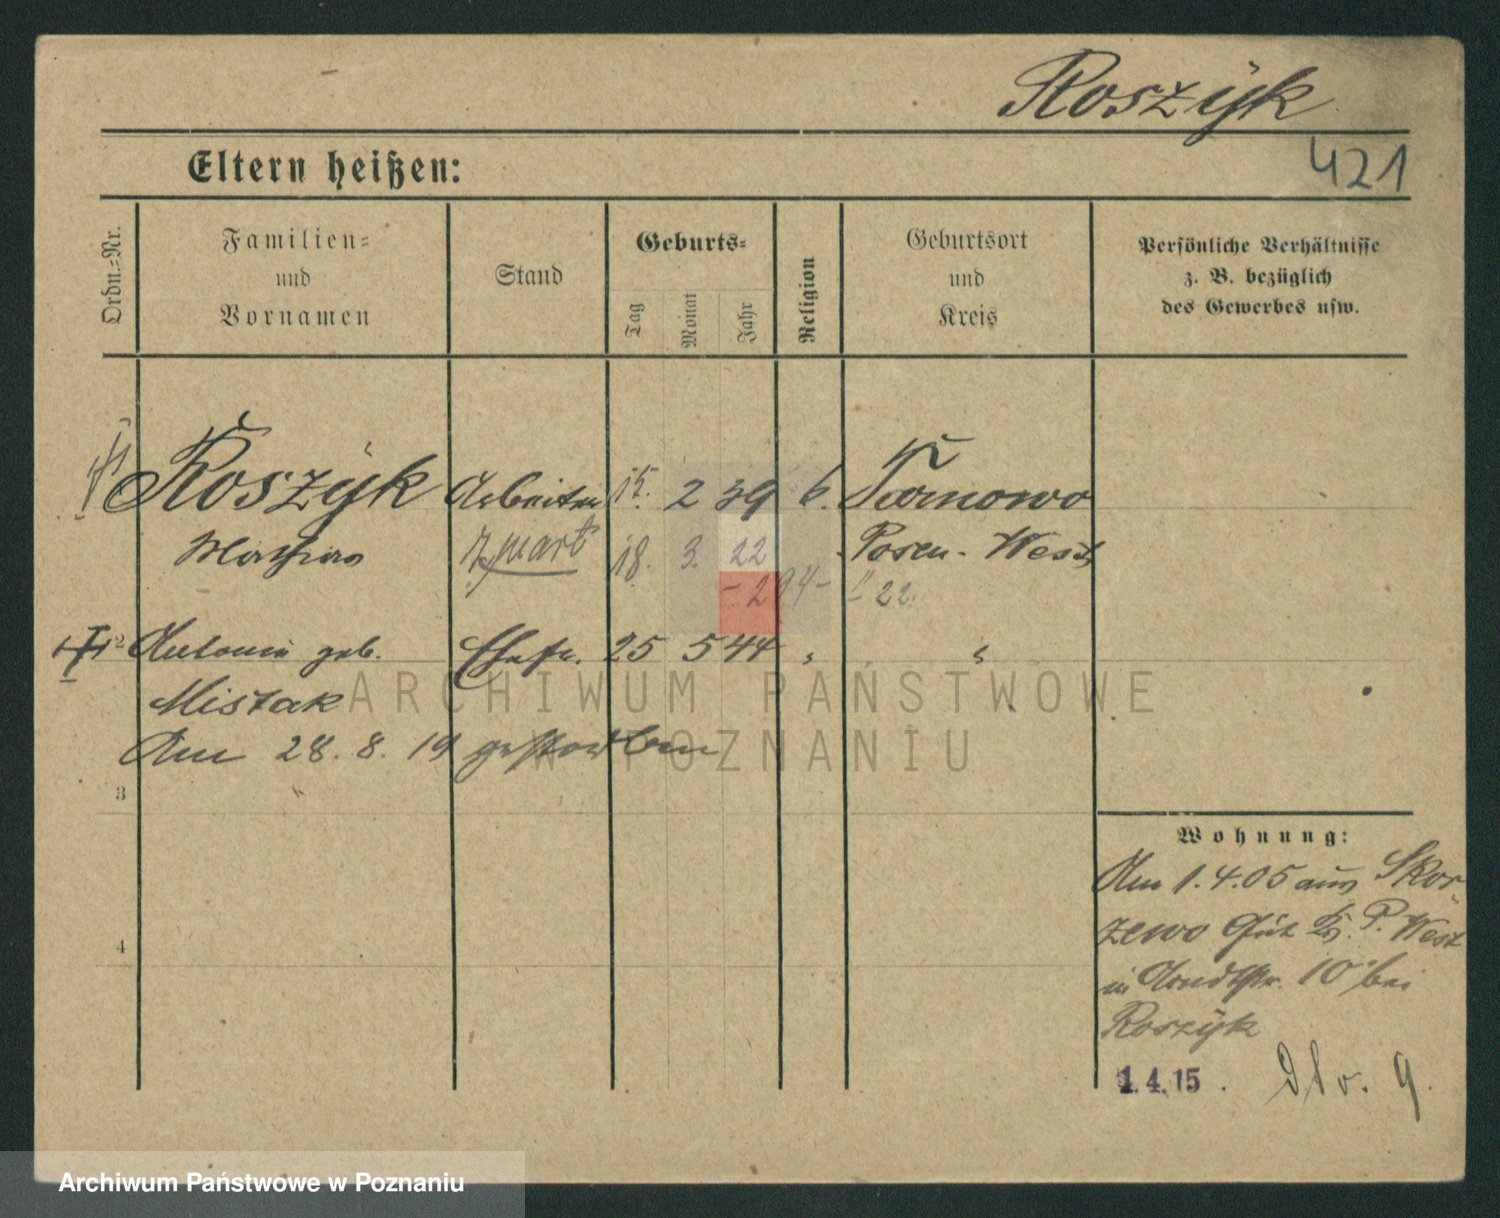 Roszÿk
421
Eltern heißen:
Ordn.=Nr.
Familien=
und
Vornamen
Stand
Geburts=
Tag
Monat
Jahr
Religion
Geburtsort
und
Kreis
Persönliche Verhältnisse
z. B. bezüglich
des Gewerbes usw.
Roszÿk Arbeiter 15. 2 39 6. Tarnowo
Mathias 18. 3. 22 Posen-West
- 294 - 22.
2 Antonie geb. Ehefr. 25 5 44 " "
Mistak
Am 28. 8. 19 gestorben
3
4
Wohnung:
Am 1. 4. 05 aus Skor-
zewo Gut Kr. P. West
in Arndtstr. 10 bei
Roszÿk
1. 4. 15. 9.
ARCHIWUM PAŃSTWOWE
W POZNANIU
Archiwum Państwowe w Poznaniu